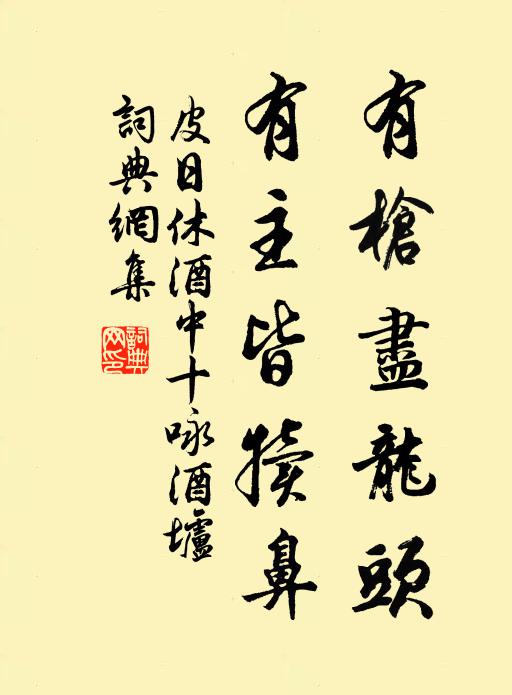 有槍盡龍頭
有主皆犢鼻
皮日休酒中十咏酒壚
詞典網集
詞典网印